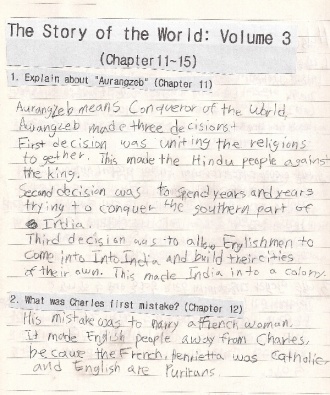 The Story of the World: Volume 3
(Chapter 11~15)
1. Explain about "Aurangzeb" (Chapter 11)
Aurangzeb means Conqueror of the World.
Aurangzeb made three decisions.
First decision was uniting the religions
together. This made the Hindu people against
the king.
Second decision was to spend years and years
trying to conquer the southern part of
India.
Third decision was to allow Englishmen to
come into Into India and build their cities
of their own. This made India into a colony.
2. What was Charles first mistake? (Chapter 12)
His mistake was to marry a French woman.
It made English people away from Charles,
because the French, Henrietta was Catholic
and English are Puritans.